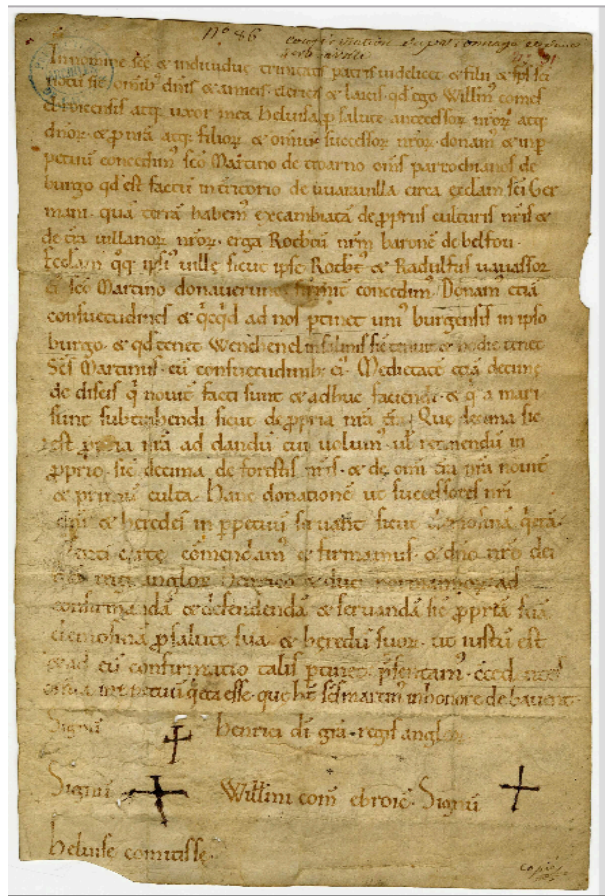 nº 86
confirmation
In nomine sc̄e & individue trinitatis patris videlicet & filii & sp̄s sc̄i
notū sit omib; dn̄is & amicis clericis & laicis qd̄ ego Willm̄ comes
ebroicensis atq; uxor mea Heluisa p̱ salute antecessoꝝ nr̄oꝝ atq;
dnoꝝ & p̱ nr̄a atq; filioꝝ & omniū successoꝝ nr̄oꝝ donam & in p̱
petuū concedim sc̄o Martino de troarno om̄s parrochianos de
burgo qd̄ est factū in territorio de Waravilla circa eccl̄am sc̄i Ger
mani quā terrā habem excambiatā de p̱priis culturis nr̄is &
de t̄ra villanoꝝ nr̄oꝝ erga Rotb̄tū nr̄m baronē de belfou.
Eccl̄am qq; ipsi ville sicut ipse Rotb̄t & Radulfus vavassor
sc̄o Martino donaverunt firmit concedim. Donam etiā
consuetudines & qcqd ad nos p̱tinet uni burgensis in ipso
burgo & qd̄ tenet Wenehenel in salinis sic tenuit & hodie tenet
Sc̄s Martinus cū consuetudinib; ei. Medietatē etiā decime
de discis q̄ novit facti sunt & adhuc faciendi & q̄ a mari
sunt subtrahendi sicut de p̱pria nr̄a t̄ra. Que decima sic
est p̱pria nr̄a ad dandū cui volum vl̄ retinendū in
p̱prio sic decima de forestis nr̄is & de om̄i t̄ra nr̄a novit
& primū culta. Hanc donationē ut successores nr̄i
& heredes in p̱petuū servent sicut elemosinā
carte comendam & firmamus & dn̄o nr̄o dei
regi angloꝝ Henrico & duci normannoꝝ ad
confirmandā & defendendā & servandā sic p̱priā suā
elemosinā p̱ salute sua & heredū suoꝝ ut iustū est
& ad eū confirmatio talis p̱tinet p̱sentam.
que ht̄ sc̄s martin in honore de bavent.
Signū Henrici dī gr̄a regis angloꝝ
Signū Willm̄i com̄ ebroic̄. Signū
Heluise comitisse.